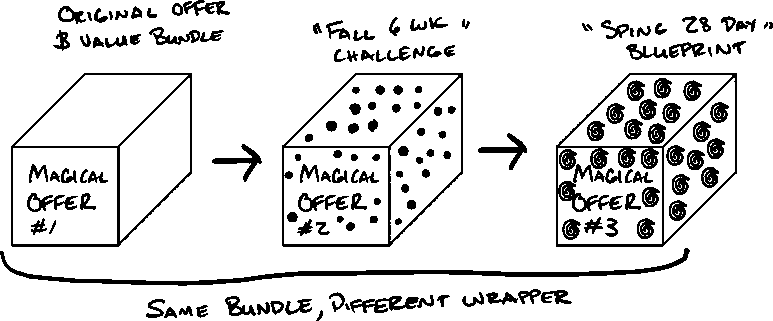 ORIGINAL OFFER
$ VALUE BUNDLE
"FALL 6 WK"
CHALLENGE
"SPING 28 DAY"
BLUEPRINT
MAGICAL
OFFER
#1
MAGICAL
OFFER
#2
MAGICAL
OFFER
#3
SAME BUNDLE, DIFFERENT WRAPPER